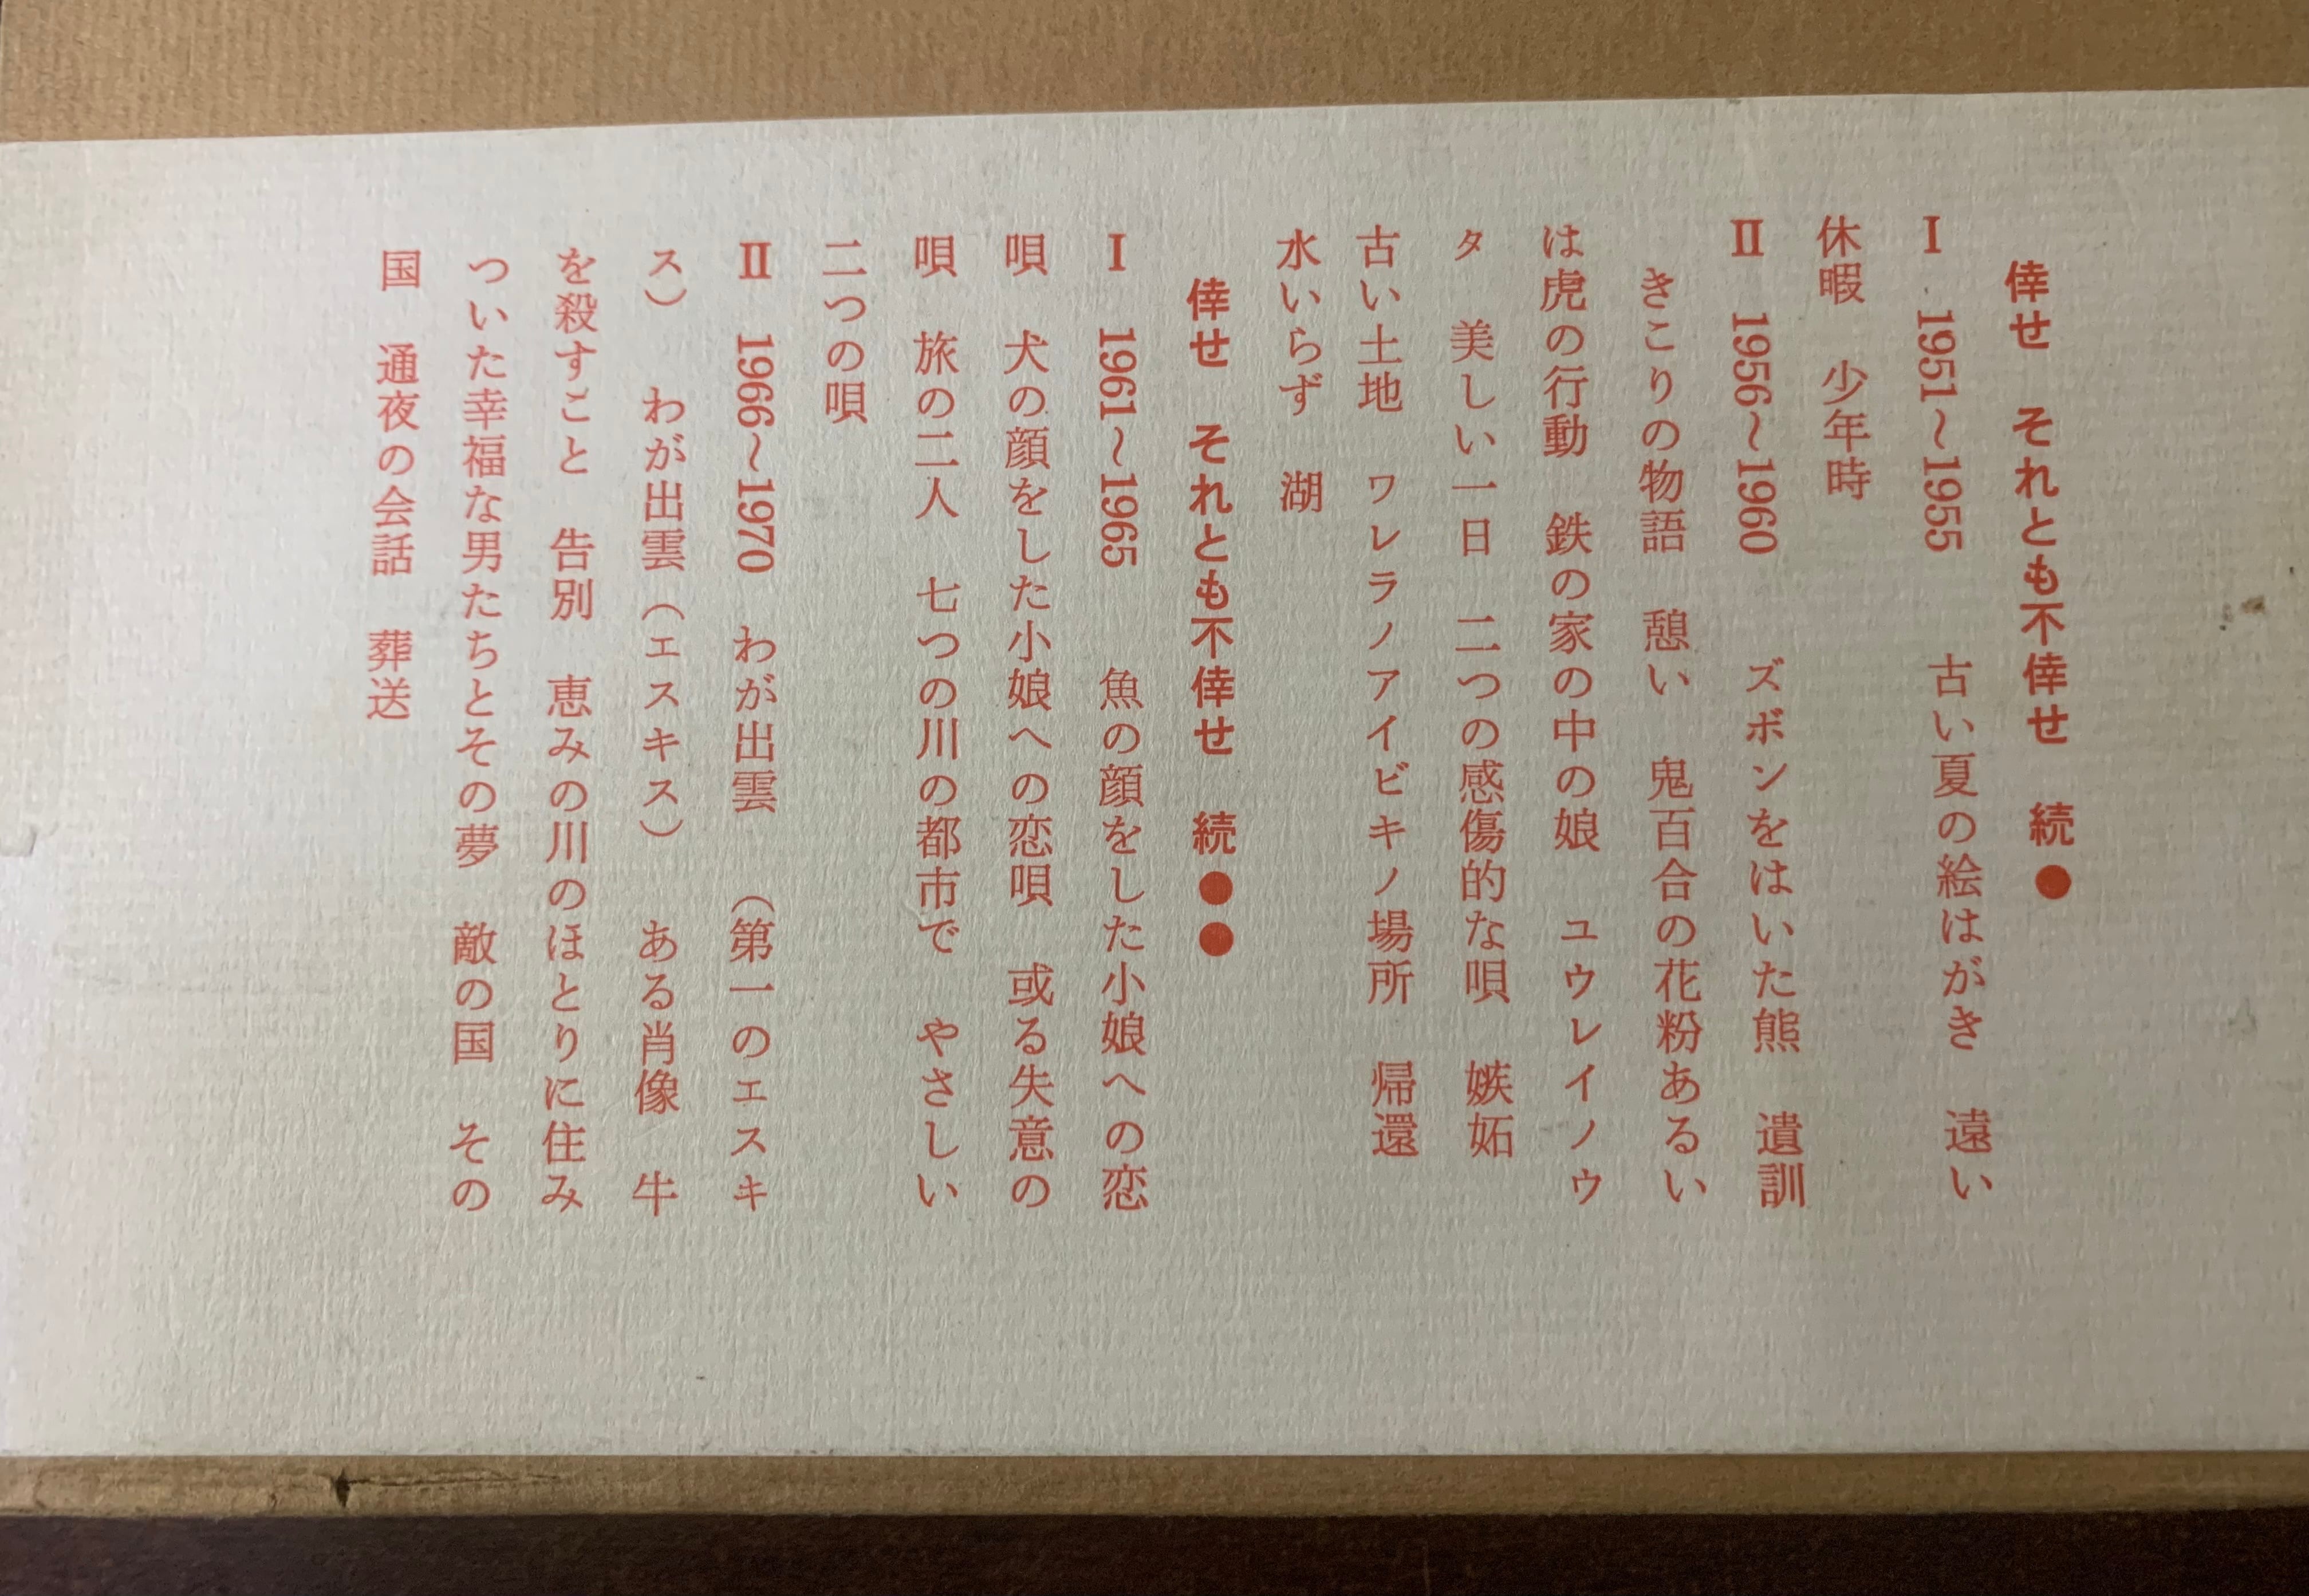 倖せ　それとも不倖せ　続●
Ⅰ　1951〜1955　　古い夏の絵はがき　遠い
休暇　少年時
Ⅱ　1956〜1960　　ズボンをはいた熊　遺訓
きこりの物語　憩い　鬼百合の花粉あるい
は虎の行動　鉄の家の中の娘　ユウレイノウ
タ　美しい一日　二つの感傷的な唄　嫉妬
古い土地　ワレラノアイビキノ場所　帰還
水いらず　湖
倖せ　それとも不倖せ　続●●
Ⅰ　1961〜1965　　魚の顔をした小娘への恋
唄　犬の顔をした小娘への恋唄　或る失意の
唄　旅の二人　七つの川の都市で　やさしい
二つの唄
Ⅱ　1966〜1970　わが出雲　（第一のエスキ
ス）　わが出雲（エスキス）　ある肖像　牛
を殺すこと　告別　恵みの川のほとりに住み
ついた幸福な男たちとその夢　敵の国　その
国　通夜の会話　葬送